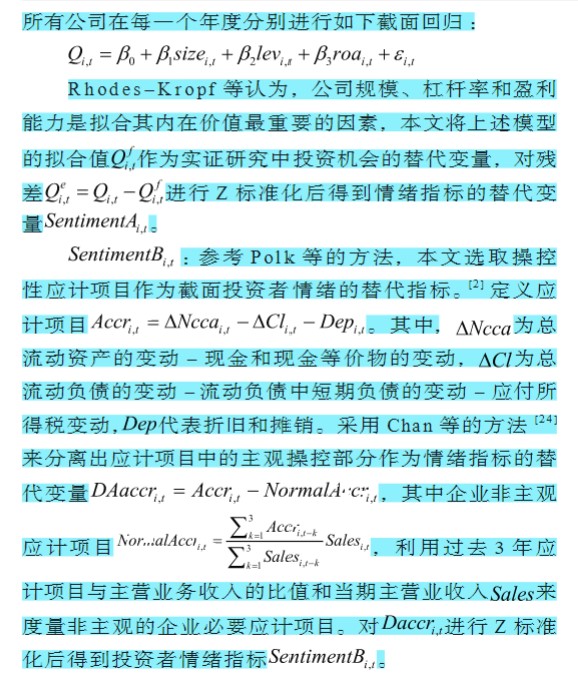 所有公司在每一个年度分别进行如下截面回归：
Q_{i,t} = β_0 + β_1size_{i,t} + β_2lev_{i,t} + β_3roa_{i,t} + ε_{i,t}
Rhodes-Kropf 等认为，公司规模、杠杆率和盈利
能力是拟合其内在价值最重要的因素，本文将上述模型
的拟合值Q^f_{i,t}作为实证研究中投资机会的替代变量，对残
差Q^e_{i,t} = Q_{i,t} − Q^f_{i,t}进行 Z 标准化后得到情绪指标的替代变
量SentimentA_{i,t}。
SentimentB_{i,t}：参考 Polk 等的方法，本文选取操控
性应计项目作为截面投资者情绪的替代指标。[2]定义应
计项目Accr_{i,t} = ΔNcca_{i,t} − ΔCl_{i,t} − Dep_{i,t}。其中，ΔNcca为总
流动资产的变动－现金和现金等价物的变动，ΔCl为总
流动负债的变动－流动负债中短期负债的变动－应付所
得税变动，Dep代表折旧和摊销。采用 Chan 等的方法[24]
来分离出应计项目中的主观操控部分作为情绪指标的替
代变量DAaccr_{i,t} = Accr_{i,t} − NormalAccr_{i,t}，其中企业非主观
应计项目NormalAccr_{i,t} = \frac{∑^3_{k=1} Accr_{i,t-k}}{∑^3_{k=1} Sales_{i,t-k}} Sales_{i,t}，利用过去 3 年应
计项目与主营业务收入的比值和当期主营业收入Sales来
度量非主观的企业必要应计项目。对Daccr_{i,t}进行 Z 标准
化后得到投资者情绪指标SentimentB_{i,t}。